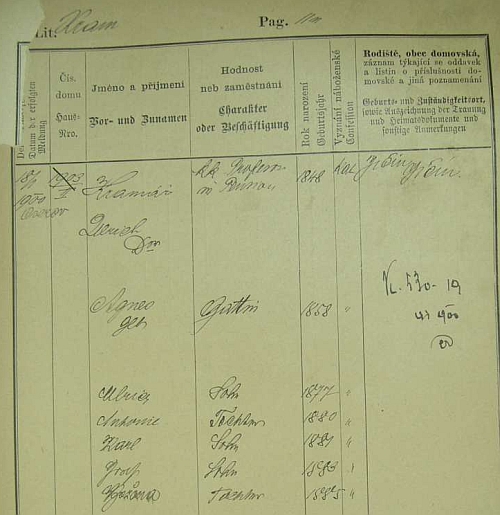 Lit. Kram
Pag.
Datum der erfolgten Meldung
Čís. domu
Haus-Nro.
Jméno a příjmení
Vor- und Zunamen
Hodnost
neb zaměstnání
Charakter
oder Beschäftigung
Rok narození
Geburtsjahr
Vyznání náboženské
Confession
Rodiště, obec domovská,
záznam týkající se oddavek
a listin o příslušnosti do-
movské a jiná poznamenání
Geburts- und Zuständigkeitsort,
sowie Aufzeichnung der Trauung
und Heimatsdokumente und
sonstige Anmerkungen
1903
k. k. Professor
in Pension
1848
Kat
Jičín Jičín
Kramář
Ulrich
Dor
Agnes
geb
Gattin
1858 "
Ulrich Sohn 1877 "
Antonie Tochter 1880 "
Karl Sohn 1881 "
Josef Sohn 1883 "
Božena Tochter 1885 "